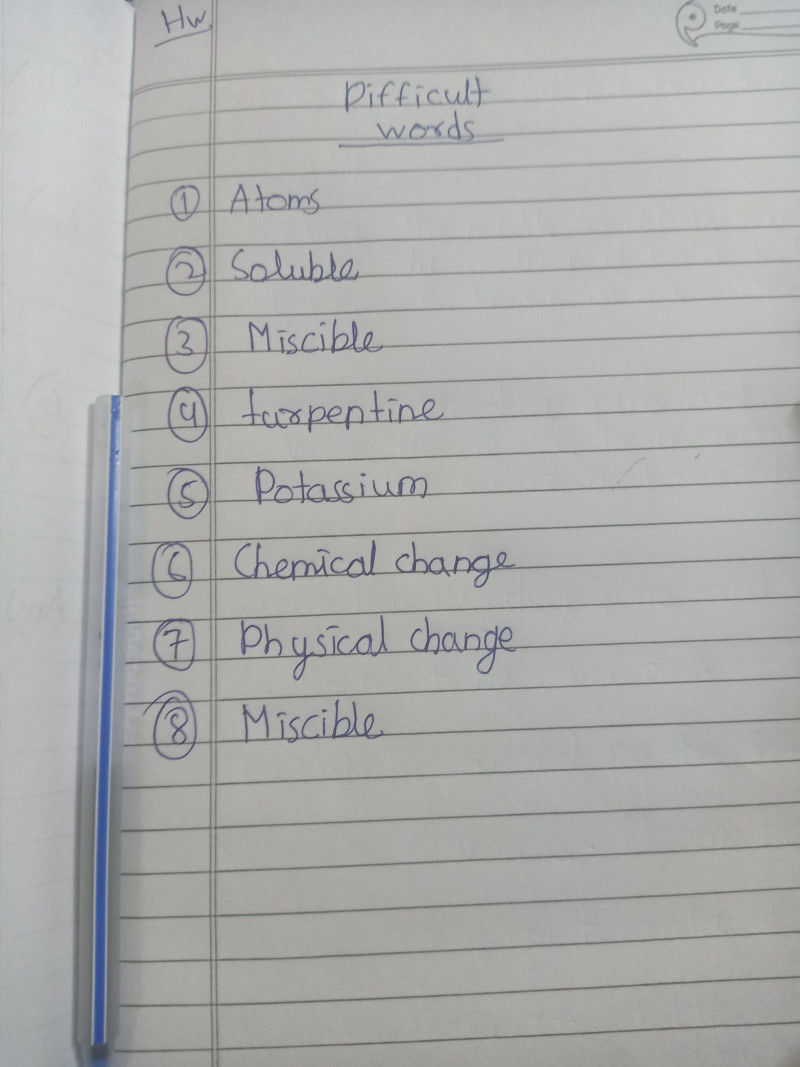 Hw
Date
Page
Difficult
words
① Atoms
② Soluble
③ Miscible
④ turpentine
⑤ Potassium
⑥ Chemical change
⑦ Physical change
⑧ Miscible